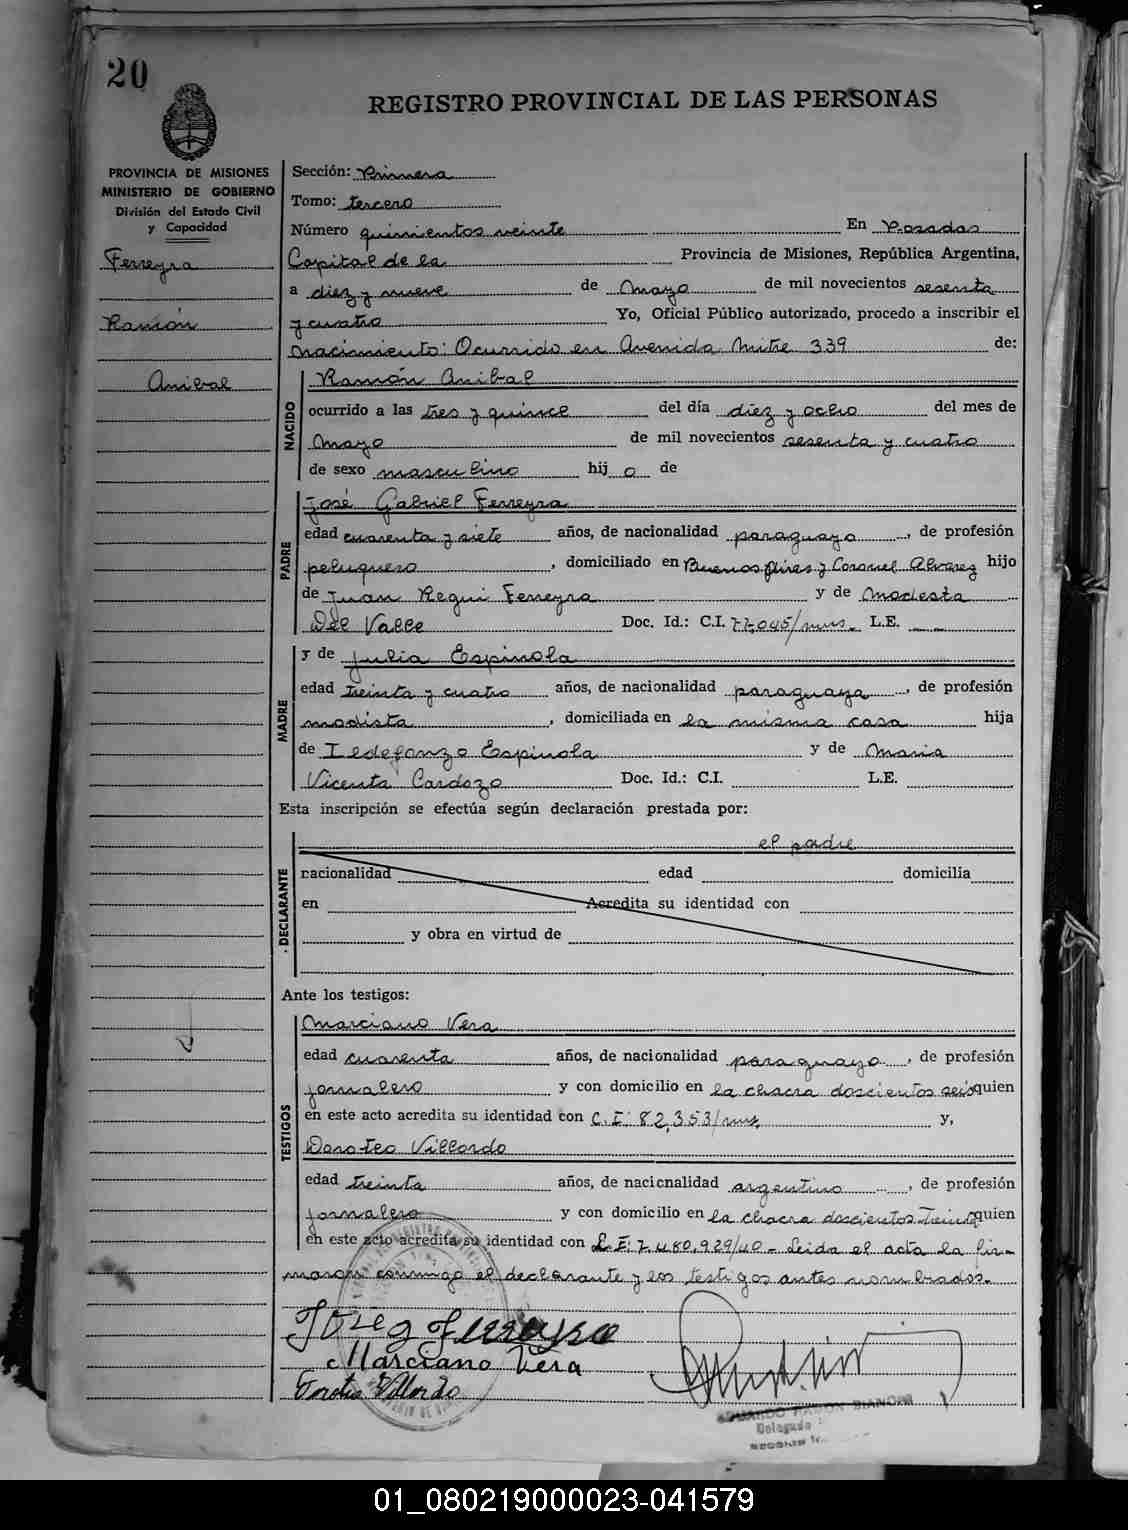 20
REGISTRO PROVINCIAL DE LAS PERSONAS
PROVINCIA DE MISIONES
MINISTERIO DE GOBIERNO
División del Estado Civil
y Capacidad
Ferreyra
Ramón
Anibal
Sección: Primera
Tomo: tercero
Número quinientos veinte En Posadas
Capital de la Provincia de Misiones, República Argentina,
a diez y nueve de Mayo de mil novecientos sesenta
y cuatro Yo, Oficial Público autorizado, procedo a inscribir el
nacimiento: Ocurrido en Avenida Mitre 339 de:
NACIDO
Ramón Anibal
ocurrido a las tres y quince del día diez y ocho del mes de
Mayo de mil novecientos sesenta y cuatro
de sexo masculino hij o de
PADRE
José Gabriel Ferreyra
edad cuarenta y siete años, de nacionalidad paraguayo, de profesión
peluquero, domiciliado en Buenos Aires y Coronel Alvarez hijo
de Juan Regui Ferreyra y de Modesta
Del Valle Doc. Id.: C.I. 77.045/mns. L.E. --
MADRE
y de Julia Espinola
edad treinta y cuatro años, de nacionalidad paraguaya, de profesión
modista, domiciliada en la misma casa hija
de Ildefonzo Espinola y de Maria
Vicenta Cardozo Doc. Id.: C.I. L.E.
Esta inscripción se efectúa según declaración prestada por:
DECLARANTE
el padre
nacionalidad edad domicilia
en Acredita su identidad con
y obra en virtud de
Ante los testigos:
TESTIGOS
Marciano Vera
edad cuarenta años, de nacionalidad paraguayo, de profesión
jornalero y con domicilio en la chacra doscientos seis quien
en este acto acredita su identidad con C.I. 82,353/mns, y,
Doroteo Villordo
edad treinta años, de nacionalidad argentino, de profesión
jornalero y con domicilio en la chacra doscientos quien
en este acto acredita su identidad con L.E. 7.480.929/40 - Leida el acta la fir-
maron conmigo el declarante y los testigos antes nombrados.
Jose g ferreyra
Marciano Vera
Villordo
EDUARDO RAMON BIANCHI
Delegado
SECCION
01_080219000023-041579